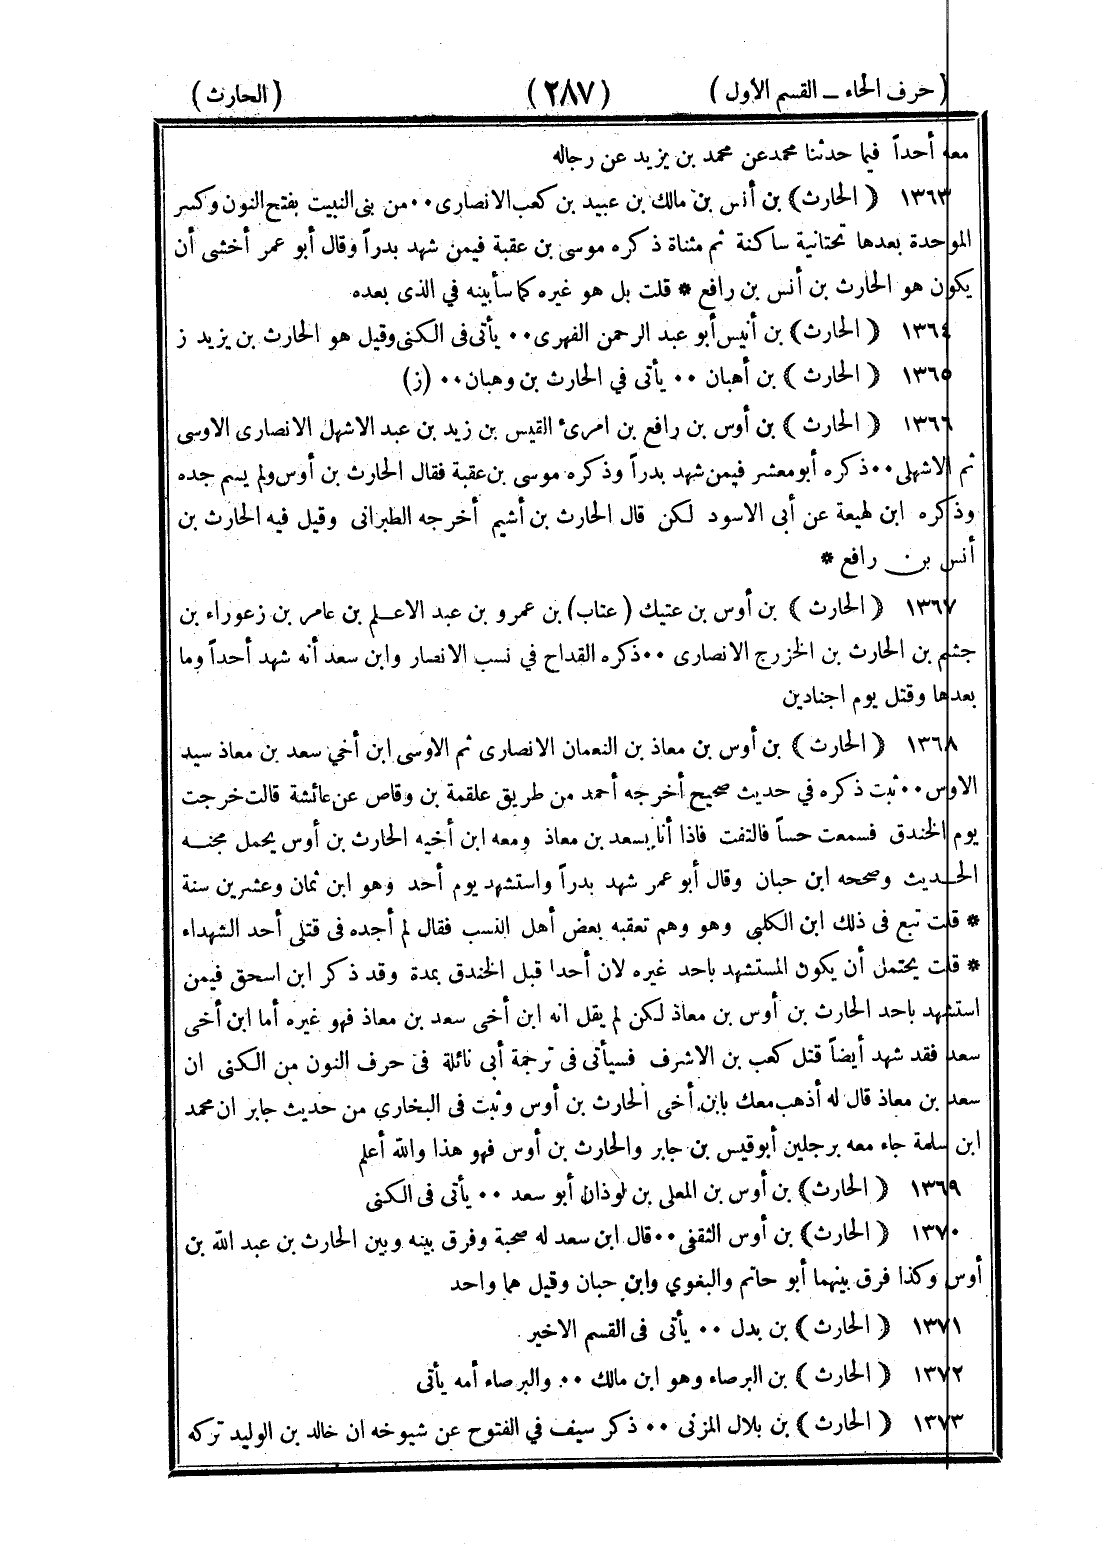 ( حرف الحاء ــ القسم الأول ) (٢٨٧) ( الحارث )
معه أحداً فيما حدثنا محمدعن محمد بن يزيد عن رجاله
١٣٦٣ ﴿ الحارث ﴾ بن أنس بن مالك بن عبيد بن كعب الانصارى٠٠من بنى النبيت بفتح النون وكسر
الموحدة بعدها تحتانية ساكنة ثم مثناة ذكره موسى بن عقبة فيمن شهد بدراً وقال أبو عمر أخشى أن
يكون هو الحارث بن أنس بن رافع * قلت بل هو غيره كما سأبينه في الذى بعده
١٣٦٤ ﴿ الحارث ﴾ بن أنيس أبو عبد الرحمن الفهرى٠٠ يأتى فى الكنى وقيل هو الحارث بن يزيد ز
١٣٦٥ ﴿ الحارث ﴾ بن أهبان ٠٠ يأتى في الحارث بن وهبان٠٠ (ز)
١٣٦٦ ﴿ الحارث ﴾ بن أوس بن رافع بن امرئ القيس بن زيد بن عبد الاشهل الانصارى الاوسى
ثم الاشهلى٠٠ذكره أبومعشر فيمن شهد بدراً وذكره موسى بن عقبة فقال الحارث بن أوس ولم يسم جده
وذكره ابن لهيعة عن أبى الاسود لكن قال الحارث بن أشيم أخرجه الطبرانى وقيل فيه الحارث بن
أنس بن رافع *
١٣٦٧ ﴿ الحارث ﴾ بن أوس بن عتيك ( عتاب) بن عمرو بن عبد الاعلم بن عامر بن زعوراء بن
جشم بن الحارث بن الخزرج الانصارى ٠٠ذكره القداح في نسب الانصار وابن سعد أنه شهد أحداً وما
بعدها وقتل يوم اجنادين
١٣٦٨ ﴿ الحارث ﴾ بن أوس بن معاذ بن النعمان الانصارى ثم الاوسى ابن أخي سعد بن معاذ سيد
الاوس٠٠ثبت ذكره في حديث صحيح أخرجه أحمد من طريق علقمة بن وقاص عن عائشة قالت خرجت
يوم الخندق فسمعت حساً فالتفت فاذا أنا بسعد بن معاذ ومعه ابن أخيه الحارث بن أوس يحمل مجنه
الحديث وصححه ابن حبان وقال أبو عمر شهد بدراً واستشهد يوم أحد وهو ابن ثمان وعشرين سنة
* قلت تبع فى ذلك ابن الكلبى وهو وهم تعقبه بعض أهل النسب فقال لم أجده فى قتلى أحد الشهداء
* قلت يحتمل أن يكون المستشهد باحد غيره لان أحدا قبل الخندق بمدة وقد ذكر ابن اسحق فيمن
استشهد باحد الحارث بن أوس بن معاذ لكن لم يقل انه ابن أخى سعد بن معاذ فهو غيره أما ابن أخى
سعد فقد شهد أيضاً قتل كعب بن الاشرف فسيأتى فى ترجمة أبي نائلة فى حرف النون من الكنى ان
سعد بن معاذ قال له أذهب معك بابن أخى الحارث بن أوس وثبت فى البخاري من حديث جابر ان محمد
ابن سلمة جاء معه برجلين أبوقيس بن جابر والحارث بن أوس فهو هذا والله أعلم
١٣٦٩ ﴿ الحارث ﴾ بن أوس بن المعلى بن لوذان أبو سعد ٠٠ يأتى فى الكنى
١٣٧٠ ﴿ الحارث ﴾ بن أوس الثقفى٠٠قال ابن سعد له صحبة وفرق بينه وبين الحارث بن عبد الله بن
أوس وكذا فرق بينهما أبو حاتم والبغوي وابن حبان وقيل هما واحد
١٣٧١ ﴿ الحارث ﴾ بن بدل ٠٠ يأتى فى القسم الاخير
١٣٧٢ ﴿ الحارث ﴾ بن البرصاء وهو ابن مالك ٠٠ والبرصاء أمه يأتى
١٣٧٣ ﴿ الحارث ﴾ بن بلال المزنى ٠٠ ذكر سيف في الفتوح عن شيوخه ان خالد بن الوليد تركه